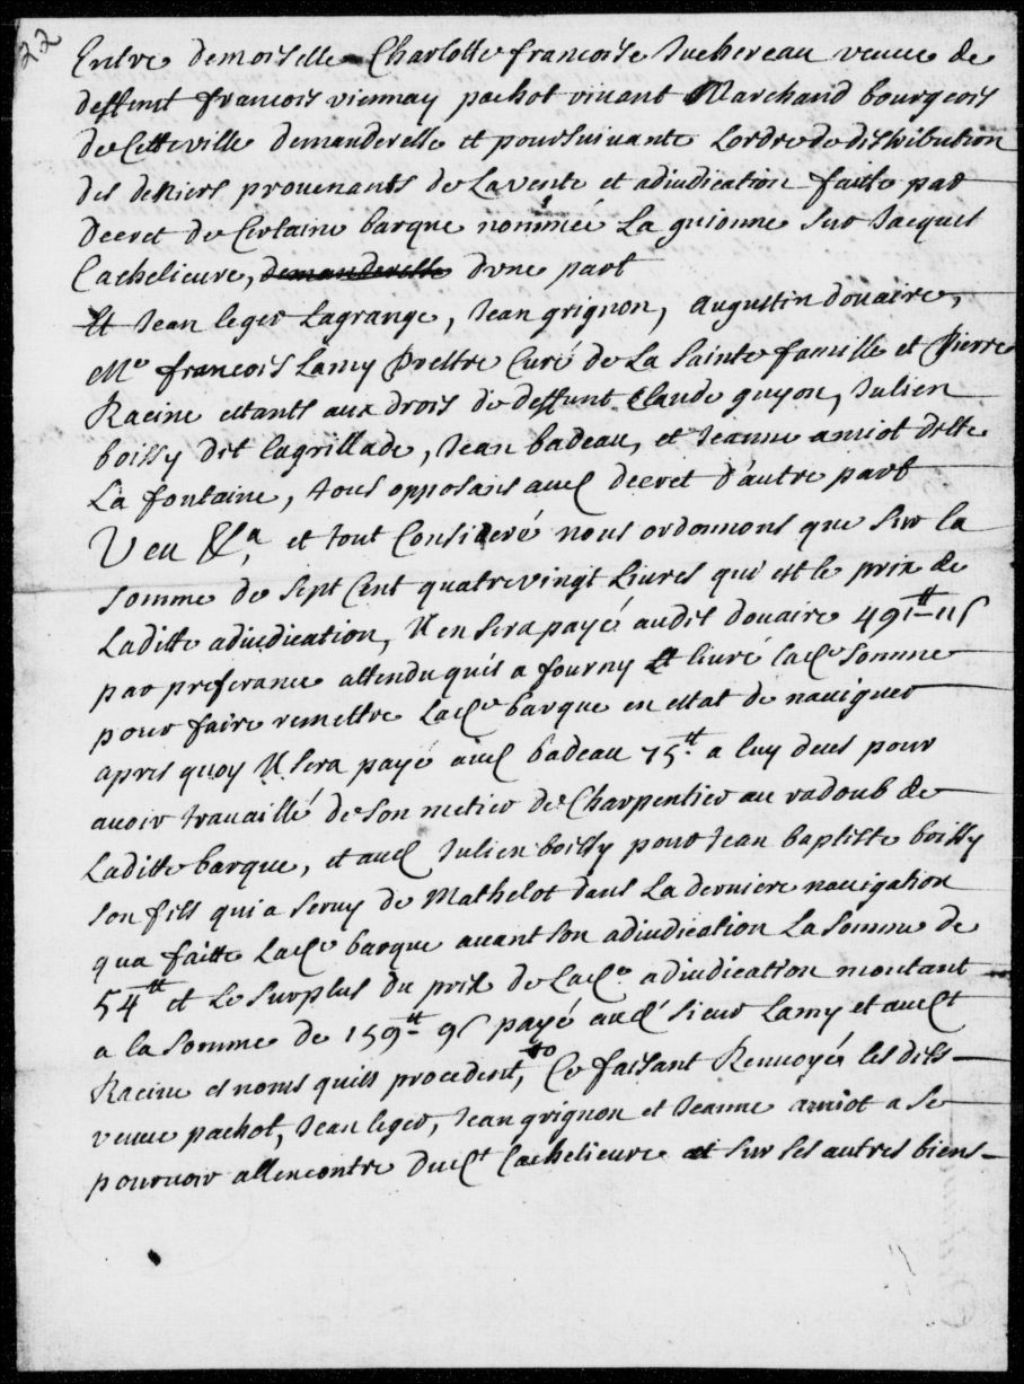 22
Entre demoiselle Charlotte francoise Juchereau veuue de
deffunt francois viennay pachot viuant Marchand bourgeois
de Cette ville demanderesse et poursuiuante Lordre de distribution
des deniers prouenants de La vente et adiudication faite par
decret de Certaine barque nommée La guionne sur Jacques
Cachelieure, demanderesse dune part
Et Jean leger Lagrange, Jean grignon, Augustin doüaire,
Me francois Lamy Prestre Curé de La Sainte famille et Pierre
Racine estants aux drois de deffunt Claude guyon, Julien
boissy dit lagrillade, Jean badeau, et Jeanne amiot ditte
La fontaine, tous opposans aud decret d'autre part
Veu &a, et tout Consideré nous ordonnons que sur la
somme de sept Cent quatre vingt Liures qui est le prix de
Laditte adiudication, Il en sera payé audit douaire 491tt 11s
par preferance attendu quil a fourny et liuré lade somme
pour faire remettre Lade barque en estat de nauiguer
apres quoy Il sera payé aud badeau 75tt a luy deues pour
auoir trauaillé de son metier de Charpentier au radoub de
Laditte barque, et aud Julien boissy pour Jean baptiste boissy
son fils qui a seruy de Mathelot dans La derniere nauigation
qua faitte Lade barque auant son adiudication La somme de
54tt et Le surplus du prix de Lade adiudication montant
a la somme de 159tt 9s payé aud sieur Lamy et audt
Racine es noms quils procedent, Ce faisant Renuoyé les dits
veuue pachot, Jean leger, Jean grignon et Jeanne amiot a se
pouruoir allencontre dudt Cachelieure et sur ses autres biens